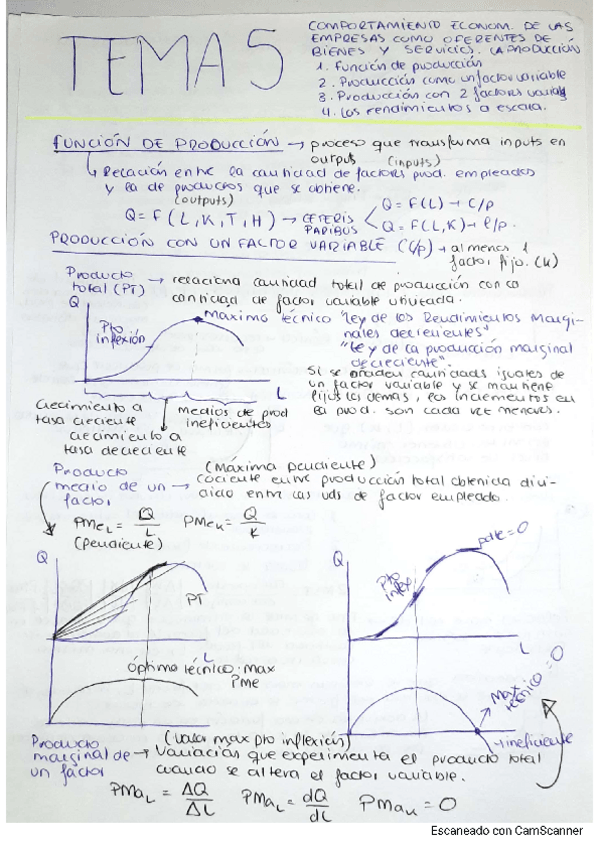 TEMA 5
COMPORTAMIENTO ECONOM. DE LAS
EMPRESAS COMO OFERENTES DE
BIENES Y SERVICIOS. LA PRODUCCIÓN
1. Función de producción
2. Producción como un factor variable
3. Producción con 2 factores variab
4. Los rendimientos a escala.
FUNCIÓN DE PRODUCCIÓN → proceso que transforma inputs en
outputs (inputs)
↳ Relación entre la cantidad de factores prod. empleados
y la de productos que se obtiene.
(outputs)
Q = F (L, K, T, H) → CETERIS PARIBUS < Q = F(L) → C/p
Q = F(L, K) → l/p.
PRODUCCIÓN CON UN FACTOR VARIABLE (C/p) → al menos 1
factor fijo. (K)
Producto
total (PT) → relaciona cantidad total de producción con la
cantidad de factor variable utilizada.
Q
Pto
inflexión
Máximo técnico
L
"Ley de los Rendimientos Margi-
nales decrecientes"
"Ley de la producción marginal
decreciente".
Si se añaden cantidades iguales de
un factor variable y se mantiene
fijos los demás, los incrementos en
la prod. son cada vez menores.
crecimiento a
tasa creciente
medios de prod
ineficientes
crecimiento a
tasa decreciente
Producto
medio de un
factor
(Máxima pendiente)
→ cociente entre producción total obtenida divi-
dido entre las uds de factor empleado.
PMe L = Q/L
PMe K = Q/K
(pendiente)
Q
PT
L
Óptimo técnico. max
PMe
Q
Pto
inflex.
pdte = 0
L
Max
técnico = 0
ineficiente
Producto
marginal de
un factor
(Valor max pto inflexión)
→ Variación que experimenta el producto total
cuando se altera el factor variable.
PMa L = ΔQ/ΔL
PMa L = dQ/dL
PMa K = 0
Escaneado con CamScanner